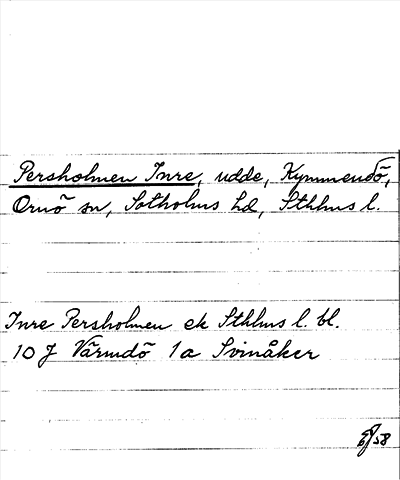 Persholmen Inre, udde, Kymmendö,
Ornö sn, Sotholms hd, Sthlms l.
Inre Persholmen ek Sthlms l. bl.
10 J Värmdö 1a Svinåker